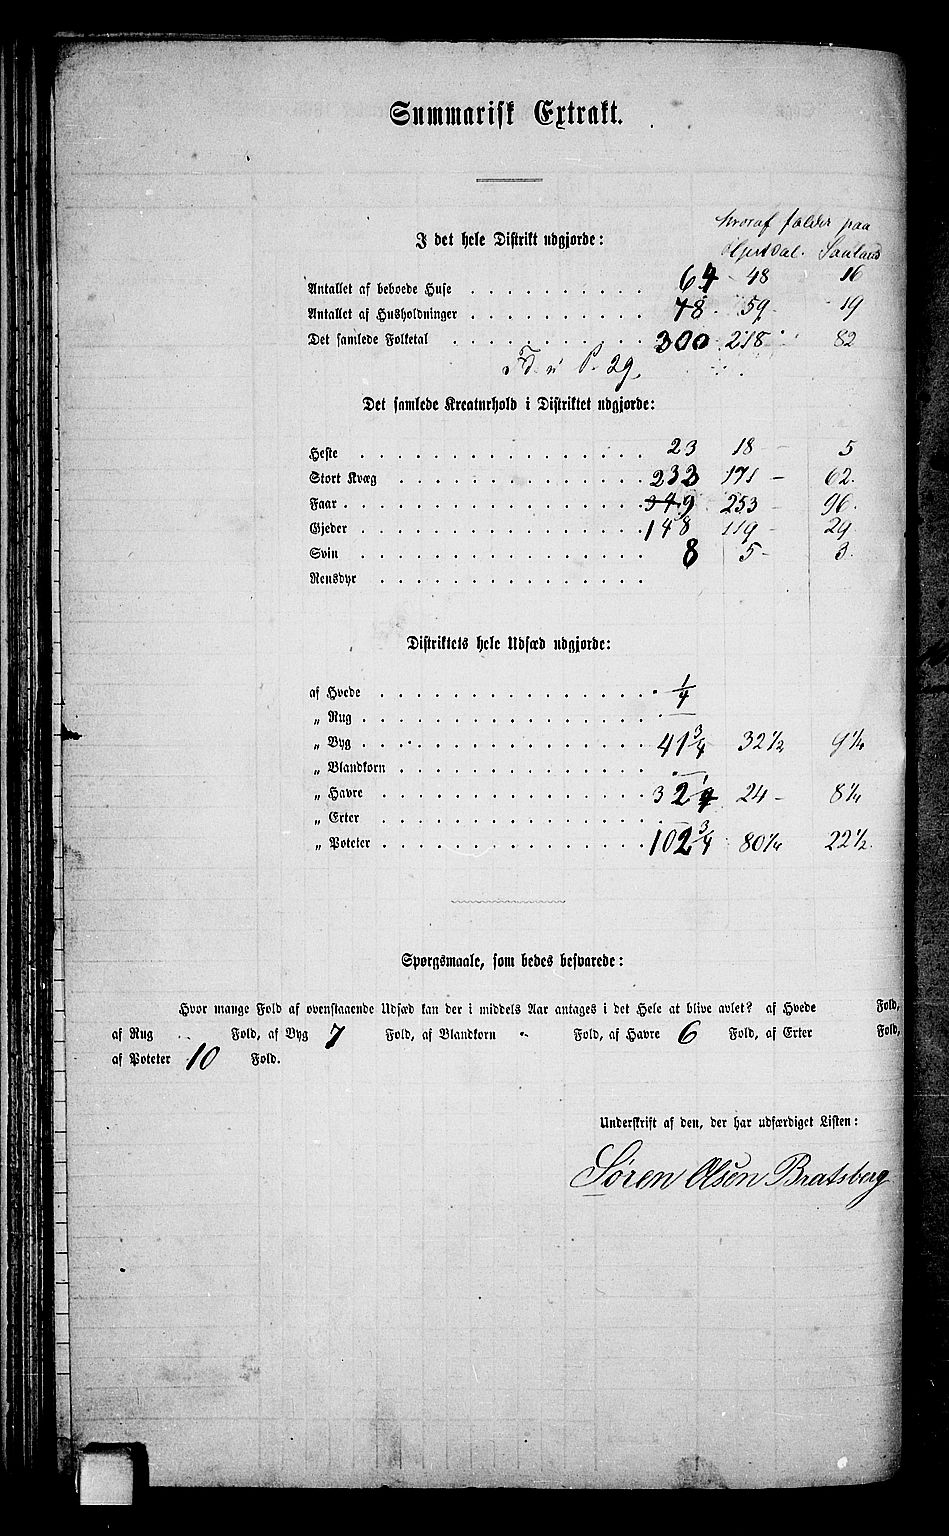 Summarisk Extrakt.
hvoraf falder paa
I det hele Distrikt udgjorde:
Hjertdal. Sauland
Antallet af beboede Huse . . . . . . . . 64 - 48 16
Antallet af Husholdninger . . . . . . . . 78. 59. 19
Det samlede Folketal . . . . . . . . 300 218 82
P. 29.
Det samlede Kreaturhold i Distriktet udgjorde:
Heste . . . . . . . . 23 18 - 5
Stort Kvæg . . . . . . . . 233 171 - 62.
Faar . . . . . . . . 349 253 96.
Gjeder . . . . . . . . 148 119 - 29
Svin . . . . . . . . 8 5 - 3.
Rensdyr . . . . . . . .
Distriktets hele Udsæd udgjorde:
af Hvede . . . . . . . . 1/4
„ Rug . . . . . . . . —
„ Byg . . . . . . . . 41 3/4 32 1/2 9 1/4
„ Blandkorn . . . . . . . . —
„ Havre . . . . . . . . 32 1/4 24 - 8 1/4
„ Erter . . . . . . . . —
„ Poteter . . . . . . . . 102 3/4 80 1/4 22 1/2.
Sporgsmaale, som bedes besvarede:
Hvor mange Fold af ovenstaaende Udsæd kan der i middels Aar antages i det Hele at blive avlet? af Hvede Fold,
af Rug Fold, af Byg 7 Fold, af Blandkorn " Fold, af Havre 6 Fold, af Erter Fold,
af Poteter 10 Fold.
Underskrift af den, der har udfærdiget Listen:
Søren Olsen Bratsberg